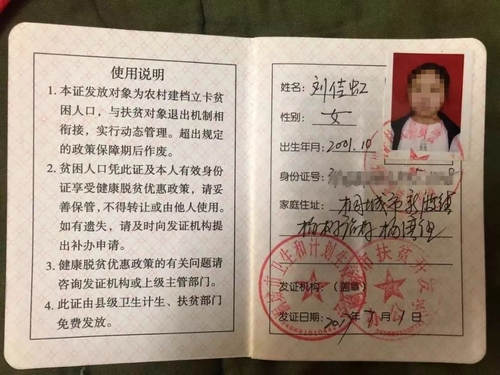 使用说明
1. 本证发放对象为农村建档立卡贫
困人口，与扶贫对象退出机制相
衔接，实行动态管理。超出规定
的政策保障期后作废。
2. 贫困人口凭此证及本人有效身份
证享受健康脱贫优惠政策，请妥
善保管，不得转让或由他人使用。
如有遗失，请及时向发证机构提
出补办申请。
3. 健康脱贫优惠政策的有关问题请
咨询发证机构或上级主管部门。
4. 此证由县级卫生计生、扶贫部门
免费发放。
姓名：刘佳虹
性别：女
出生年月：2001.10
身份证号：
家庭住址：桐城市新渡镇
杨树许村杨
发证机构（盖章）
市卫生和计划生
市扶贫开发
发证日期：2017年7月1日